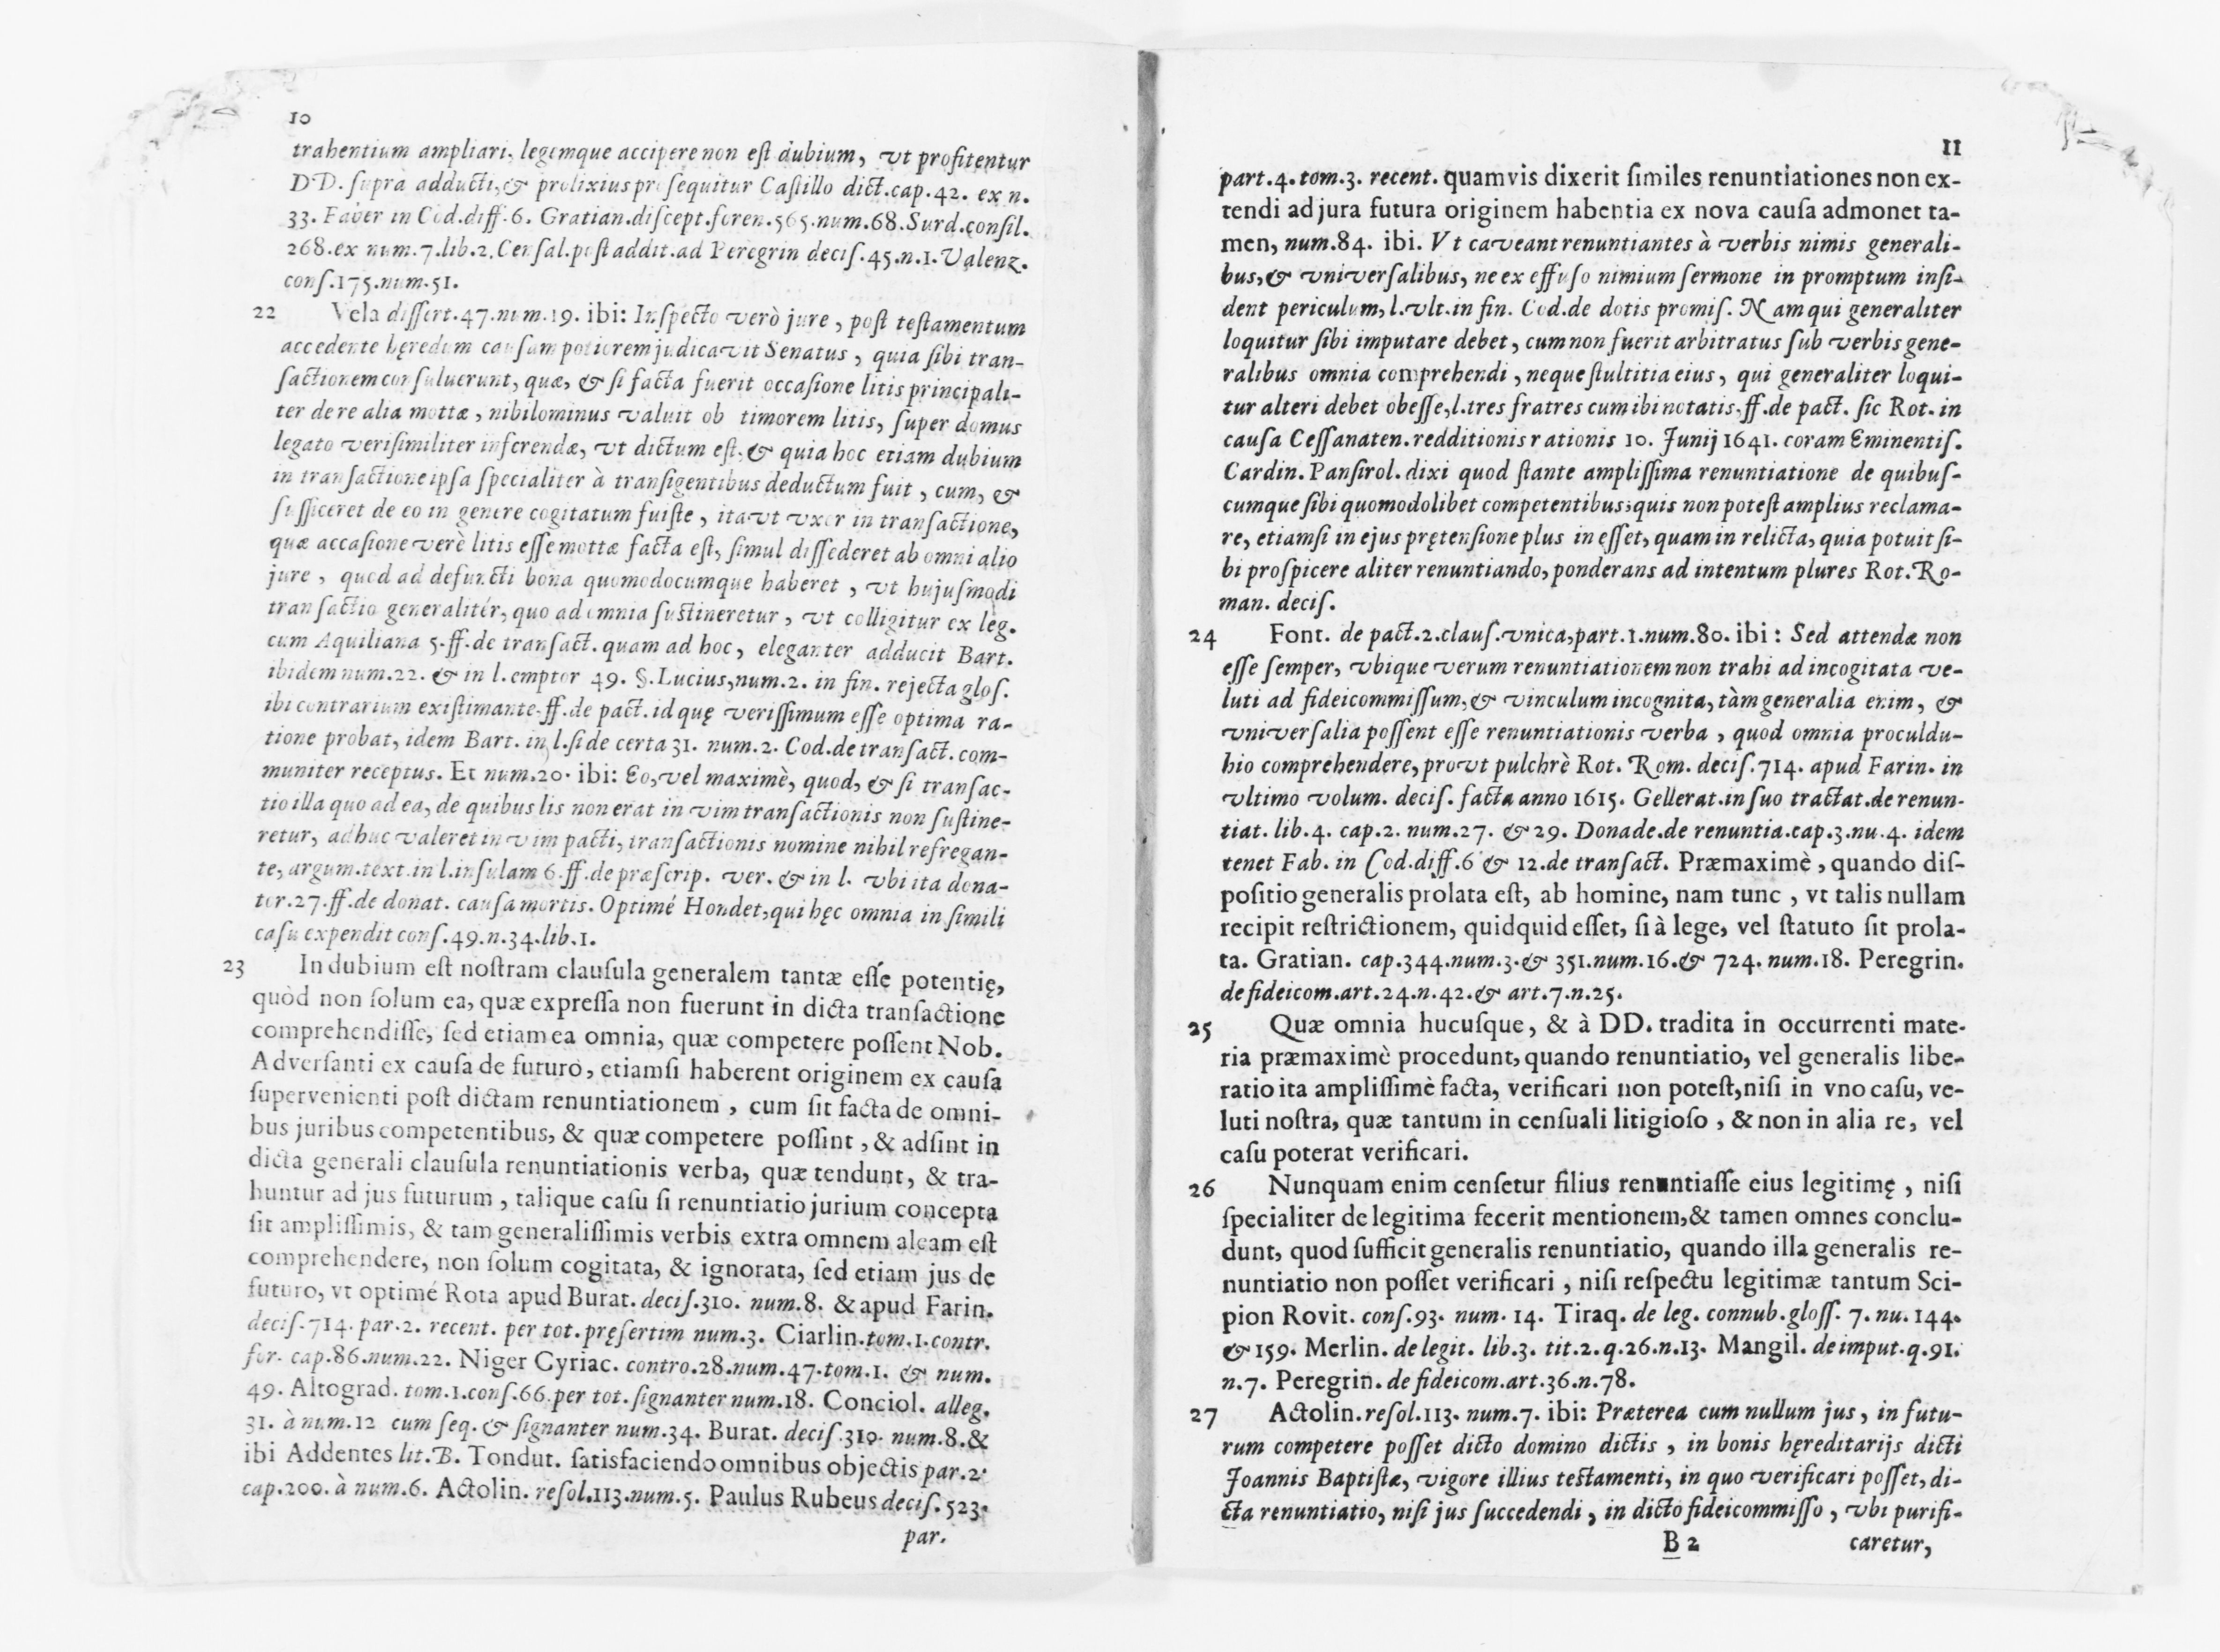 10
trahentium ampliari, legemque accipere non eſt dubium, vt profitentur
DD. ſupra adducti, & prolixius proſequitur Caſtillo dict.cap.42. ex n.
33. Faber in Cod.diff.6. Gratian.diſcept.foren.565.num.68.Surd.conſil.
268.ex num.7.lib.2.Cenſal.poſt addit.ad Peregrin deciſ.45.n.1.Valenz.
conſ.175.num.51.
22 Vela diſſert.47.num.19. ibi: Inſpecto verò jure, poſt teſtamentum
accedente hęredum cauſam potiorem judicavit Senatus, quia ſibi tran-
ſactionem conſuluerunt, quæ, & ſi facta fuerit occaſione litis principali-
ter de re alia mottæ, nihilominus valuit ob timorem litis, ſuper domus
legato veriſimiliter inferendæ, vt dictum eſt, & quia hoc etiam dubium
in tranſactione ipſa ſpecialiter à tranſigentibus deductum fuit, cum, &
ſufficeret de eo in genere cogitatum fuiſte, ita vt vxor in tranſactione,
quæ accaſione verè litis eſſe mottæ facta eſt, ſimul diſſederet ab omni alio
jure, quod ad defuncti bona quomodocumque haberet, vt hujuſmodi
tranſactio generalitér, quo ad omnia ſuſtineretur, vt colligitur ex leg.
cum Aquiliana 5.ff.de tranſact. quam ad hoc, eleganter adducit Bart.
ibidem num.22. & in l.emptor 49. §.Lucius,num.2. in fin. rejecta gloſ.
ibi contrarium exiſtimante.ff.de pact.id quę veriſſimum eſſe optima ra-
tione probat, idem Bart. in l.ſi de certa 31. num.2. Cod.de tranſact.com-
muniter receptus. Et num.20. ibi: Eo, vel maximè, quod, & ſi tranſac-
tio illa quo ad ea, de quibus lis non erat in vim tranſactionis non ſuſtine-
retur, adhuc valeret in vim pacti, tranſactionis nomine nihil refregan-
te, argum.text.in l.inſulam 6.ff.de præſcrip. ver. & in l. vbi ita dona-
tor.27.ff.de donat. cauſa mortis. Optimé Hondet, qui hęc omnia in ſimili
caſu expendit conſ.49.n.34.lib.1.
23 In dubium eſt noſtram clauſula generalem tantæ eſſe potentię,
quòd non ſolum ea, quæ expreſſa non fuerunt in dicta tranſactione
comprehendiſſe, ſed etiam ea omnia, quæ competere poſſent Nob.
Adverſanti ex cauſa de futuro, etiamſi haberent originem ex cauſa
ſupervenienti poſt dictam renuntiationem, cum ſit facta de omni-
bus juribus competentibus, & quæ competere poſſint, & adſint in
dicta generali clauſula renuntiationis verba, quæ tendunt, & tra-
huntur ad jus futurum, talique caſu ſi renuntiatio jurium concepta
ſit ampliſſimis, & tam generaliſſimis verbis extra omnem aleam eſt
comprehendere, non ſolum cogitata, & ignorata, ſed etiam jus de
futuro, vt optimé Rota apud Burat. deciſ.310. num.8. & apud Farin.
deciſ.714. par.2. recent. per tot. pręſertim num.3. Ciarlin.tom.1.contr.
for. cap.86.num.22. Niger Cyriac. contro.28.num.47.tom.1. & num.
49. Altograd. tom.1.conſ.66.per tot.ſignanter num.18. Conciol. alleg.
31. à num.12 cum ſeq. & ſignanter num.34. Burat. deciſ.310. num.8.&
ibi Addentes lit.B. Tondut. ſatisfaciendo omnibus objectis par.2.
cap.200. à num.6. Actolin. reſol.113.num.5. Paulus Rubeus deciſ.523.
par.
11
part.4.tom.3. recent. quamvis dixerit ſimiles renuntiationes non ex-
tendi ad jura futura originem habentia ex nova cauſa admonet ta-
men, num.84. ibi. Vt caveant renuntiantes à verbis nimis generali-
bus, & vniverſalibus, ne ex effuſo nimium ſermone in promptum inſi-
dent periculum, l.vlt.in fin. Cod.de dotis promiſ. Nam qui generaliter
loquitur ſibi imputare debet, cum non fuerit arbitratus ſub verbis gene-
ralibus omnia comprehendi, neque ſtultitia eius, qui generaliter loqui-
tur alteri debet obeſſe, l.tres fratres cum ibi notatis.ff.de pact. ſic Rot. in
cauſa Ceſſanaten.redditionis rationis 10. Junij 1641. coram Eminentiſ.
Cardin. Panſirol. dixi quod ſtante ampliſſima renuntiatione de quibuſ-
cumque ſibi quomodolibet competentibus; quis non poteſt amplius reclama-
re, etiamſi in ejus prętenſione plus in eſſet, quam in relicta, quia potuit ſi-
bi proſpicere aliter renuntiando, ponderans ad intentum plures Rot. Ro-
man. deciſ.
24 Font. de pact.2.clauſ.vnica,part.1.num.80. ibi: Sed attendæ non
eſſe ſemper, vbique verum renuntiationem non trahi ad incogitata ve-
luti ad fideicommiſſum, & vinculum incognita, tàm generalia enim, &
vniverſalia poſſent eſſe renuntiationis verba, quod omnia proculdu-
bio comprehendere, provt pulchrè Rot. Rom. deciſ.714. apud Farin. in
vltimo volum. deciſ. facta anno 1615. Gellerat.in ſuo tractat.de renun-
tiat. lib.4. cap.2. num.27. & 29. Donade.de renuntia.cap.3.nu.4. idem
tenet Fab. in Cod.diff.6 & 12.de tranſact. Præmaximè, quando diſ-
poſitio generalis prolata eſt, ab homine, nam tunc, vt talis nullam
recipit reſtrictionem, quidquid eſſet, ſi à lege, vel ſtatuto ſit prola-
ta. Gratian. cap.344.num.3.& 351.num.16.& 724. num.18. Peregrin.
de fideicom.art.24.n.42.& art.7.n.25.
25 Quæ omnia hucuſque, & à DD. tradita in occurrenti mate-
ria præmaximè procedunt, quando renuntiatio, vel generalis libe-
ratio ita ampliſſimè facta, verificari non poteſt, niſi in vno caſu, ve-
luti noſtra, quæ tantum in cenſuali litigioſo, & non in alia re, vel
caſu poterat verificari.
26 Nunquam enim cenſetur filius renuntiaſſe eius legitimę, niſi
ſpecialiter de legitima fecerit mentionem, & tamen omnes conclu-
dunt, quod ſufficit generalis renuntiatio, quando illa generalis re-
nuntiatio non poſſet verificari, niſi reſpectu legitimæ tantum Sci-
pion Rovit. conſ.93. num. 14. Tiraq. de leg. connub.gloſſ. 7. nu. 144.
& 159. Merlin. de legit. lib.3. tit.2. q.26.n.13. Mangil. de imput.q.91.
n.7. Peregrin. de fideicom.art.36.n.78.
27 Actolin.reſol.113. num.7. ibi: Præterea cum nullum jus, in futu-
rum competere poſſet dicto domino dictis, in bonis hęreditarijs dicti
Joannis Baptiſtæ, vigore illius teſtamenti, in quo verificari poſſet, di-
cta renuntiatio, niſi jus ſuccedendi, in dicto fideicommiſſo, vbi purifi-
B 2 caretur,